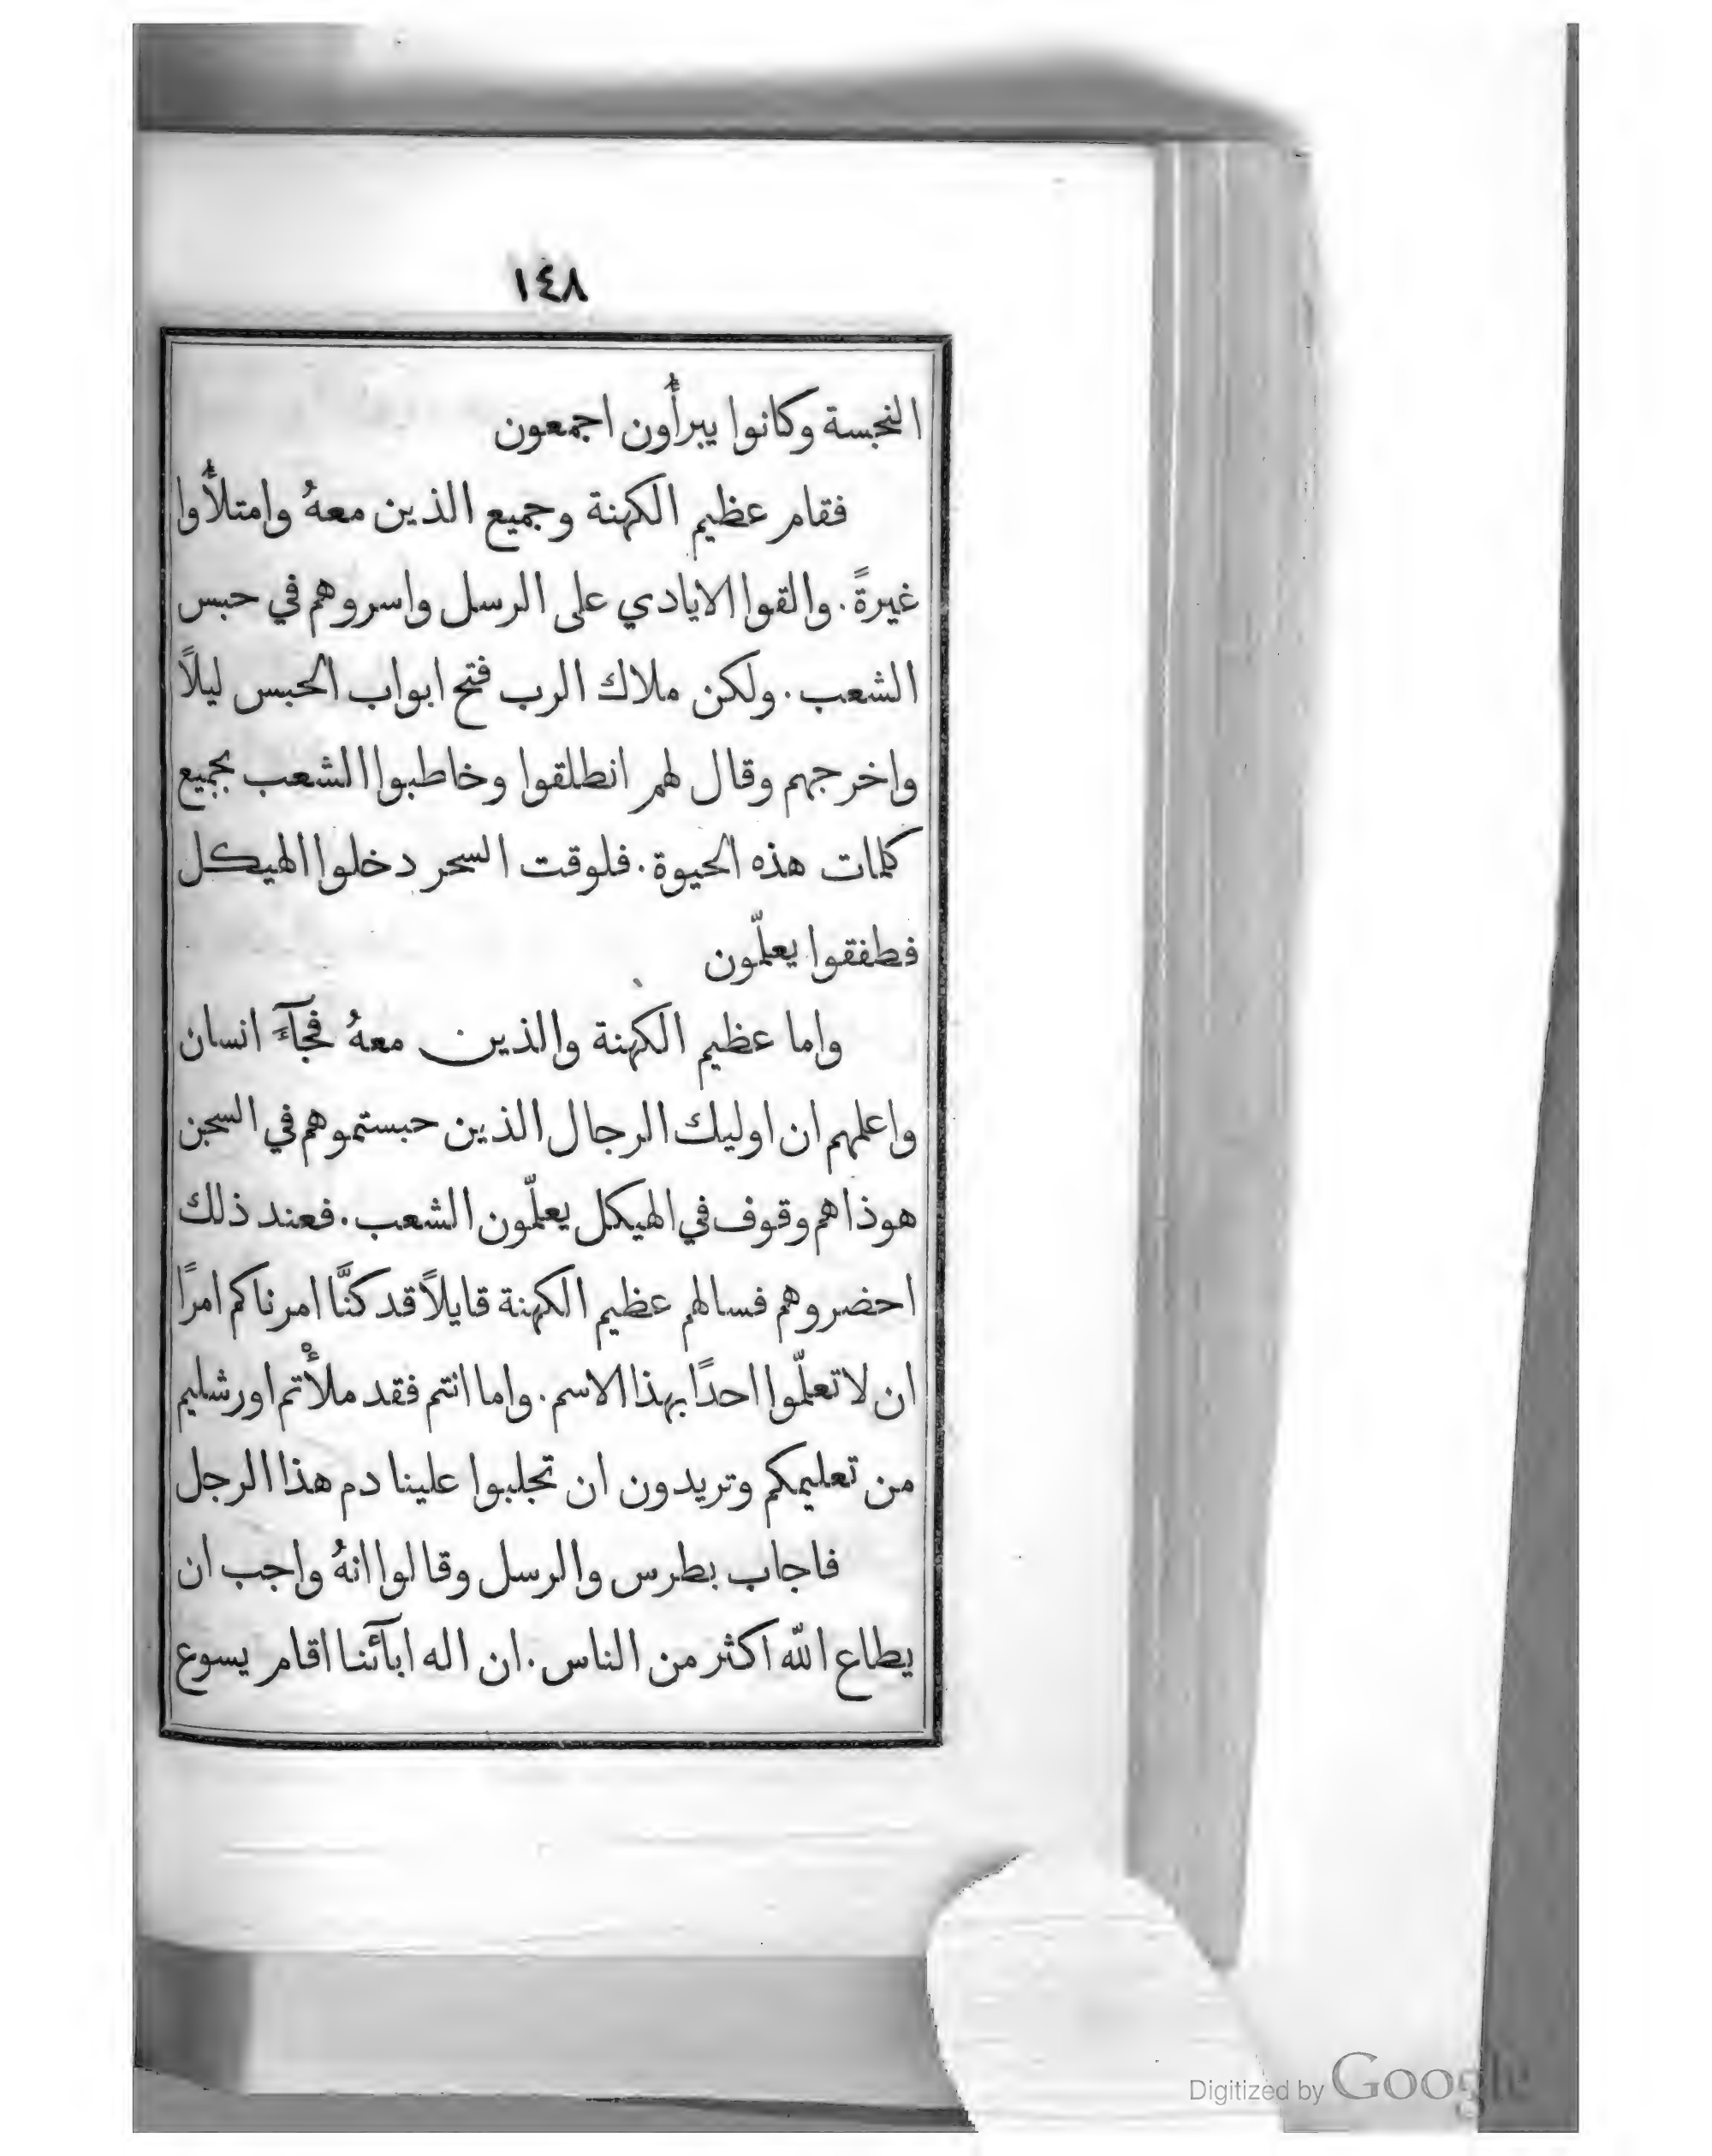 ١٤٨
النجسة وكانوا يبرأون اجمعون
فقام عظيم الكهنة وجميع الذين معهُ وامتلأوا
غيرةً. والقوا الايادي على الرسل واسروهم في حبس
الشعب. ولكن ملاك الرب فتح ابواب الحبس ليلاً
واخرجهم وقال لهم انطلقوا وخاطبوا الشعب بجميع
كلمات هذه الحيوة. فلوقت السحر دخلوا الهيكل
فطفقوا يعلّمون
واما عظيم الكهنة والذين معهُ فجآءَ انسان
واعلمهم ان اوليك الرجال الذين حبستموهم في السجن
هوذا هم وقوف في الهيكل يعلّمون الشعب. فعند ذلك
احضروهم فسالهم عظيم الكهنة قايلاً قد كنَّا امرناكم امرًا
ان لا تعلّموا احدًا بهذا الاسم. واما انتم فقد ملأْتم اورشليم
من تعليمكم وتريدون ان تجلبوا علينا دم هذا الرجل
فاجاب بطرس والرسل وقالوا انهُ واجب ان
يطاع اللّه اكثر من الناس. ان اله ابآئنا اقام يسوع
Digitized by Google